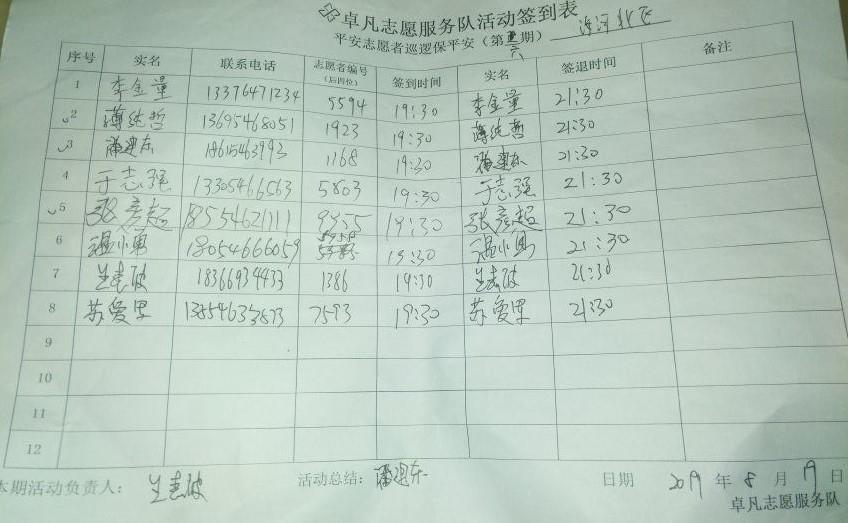 卓凡志愿服务队活动签到表
平安志愿者巡逻保平安（第六期） 滨河北区
序号 实名 联系电话 志愿者编号（后四位） 签到时间 实名 签退时间 备注
1 李金量 13376471234 5594 19:30 李金量 21:30
2 薄纯哲 13695468051 1923 19:30 薄纯哲 21:30
3 潘建东 18615463993 1168 19:30 潘建东 21:30
4 于志强 13305466563 5803 19:30 于志强 21:30
5 张彦超 18554621111 19:30 张彦超 21:30
6 温小勇 18054666059 19:30 温小勇 21:30
7 生志波 18366934433 1386 19:30 生志波 21:30
8 苏爱军 13854633873 7593 19:30 苏爱军 21:30
9
10
11
12
本期活动负责人： 生志波 活动总结： 潘建东 日期 2019 年 8 月 19 日
卓凡志愿服务队